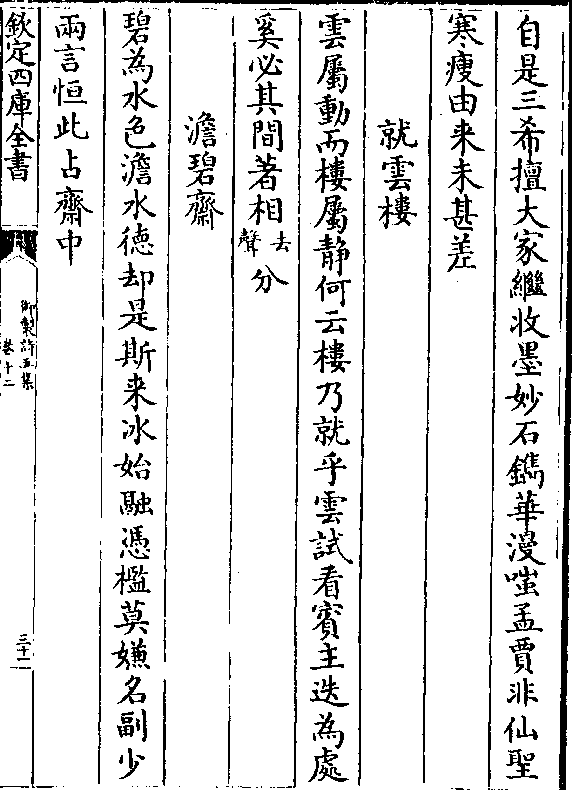 自是三希擅大家繼收墨妙石鐫華漫嗤孟賈非仙聖
寒瘦由来未甚差
就雲樓
雲屬動而樓屬静何云樓乃就乎雲試看賓主迭為處
奚必其間著相去聲分
澹碧齋
碧為水色澹水德却是斯来冰始融憑檻莫嫌名副少
兩言恒此占齋中
欽定四庫全書
御製詩五集
卷十二
三十二